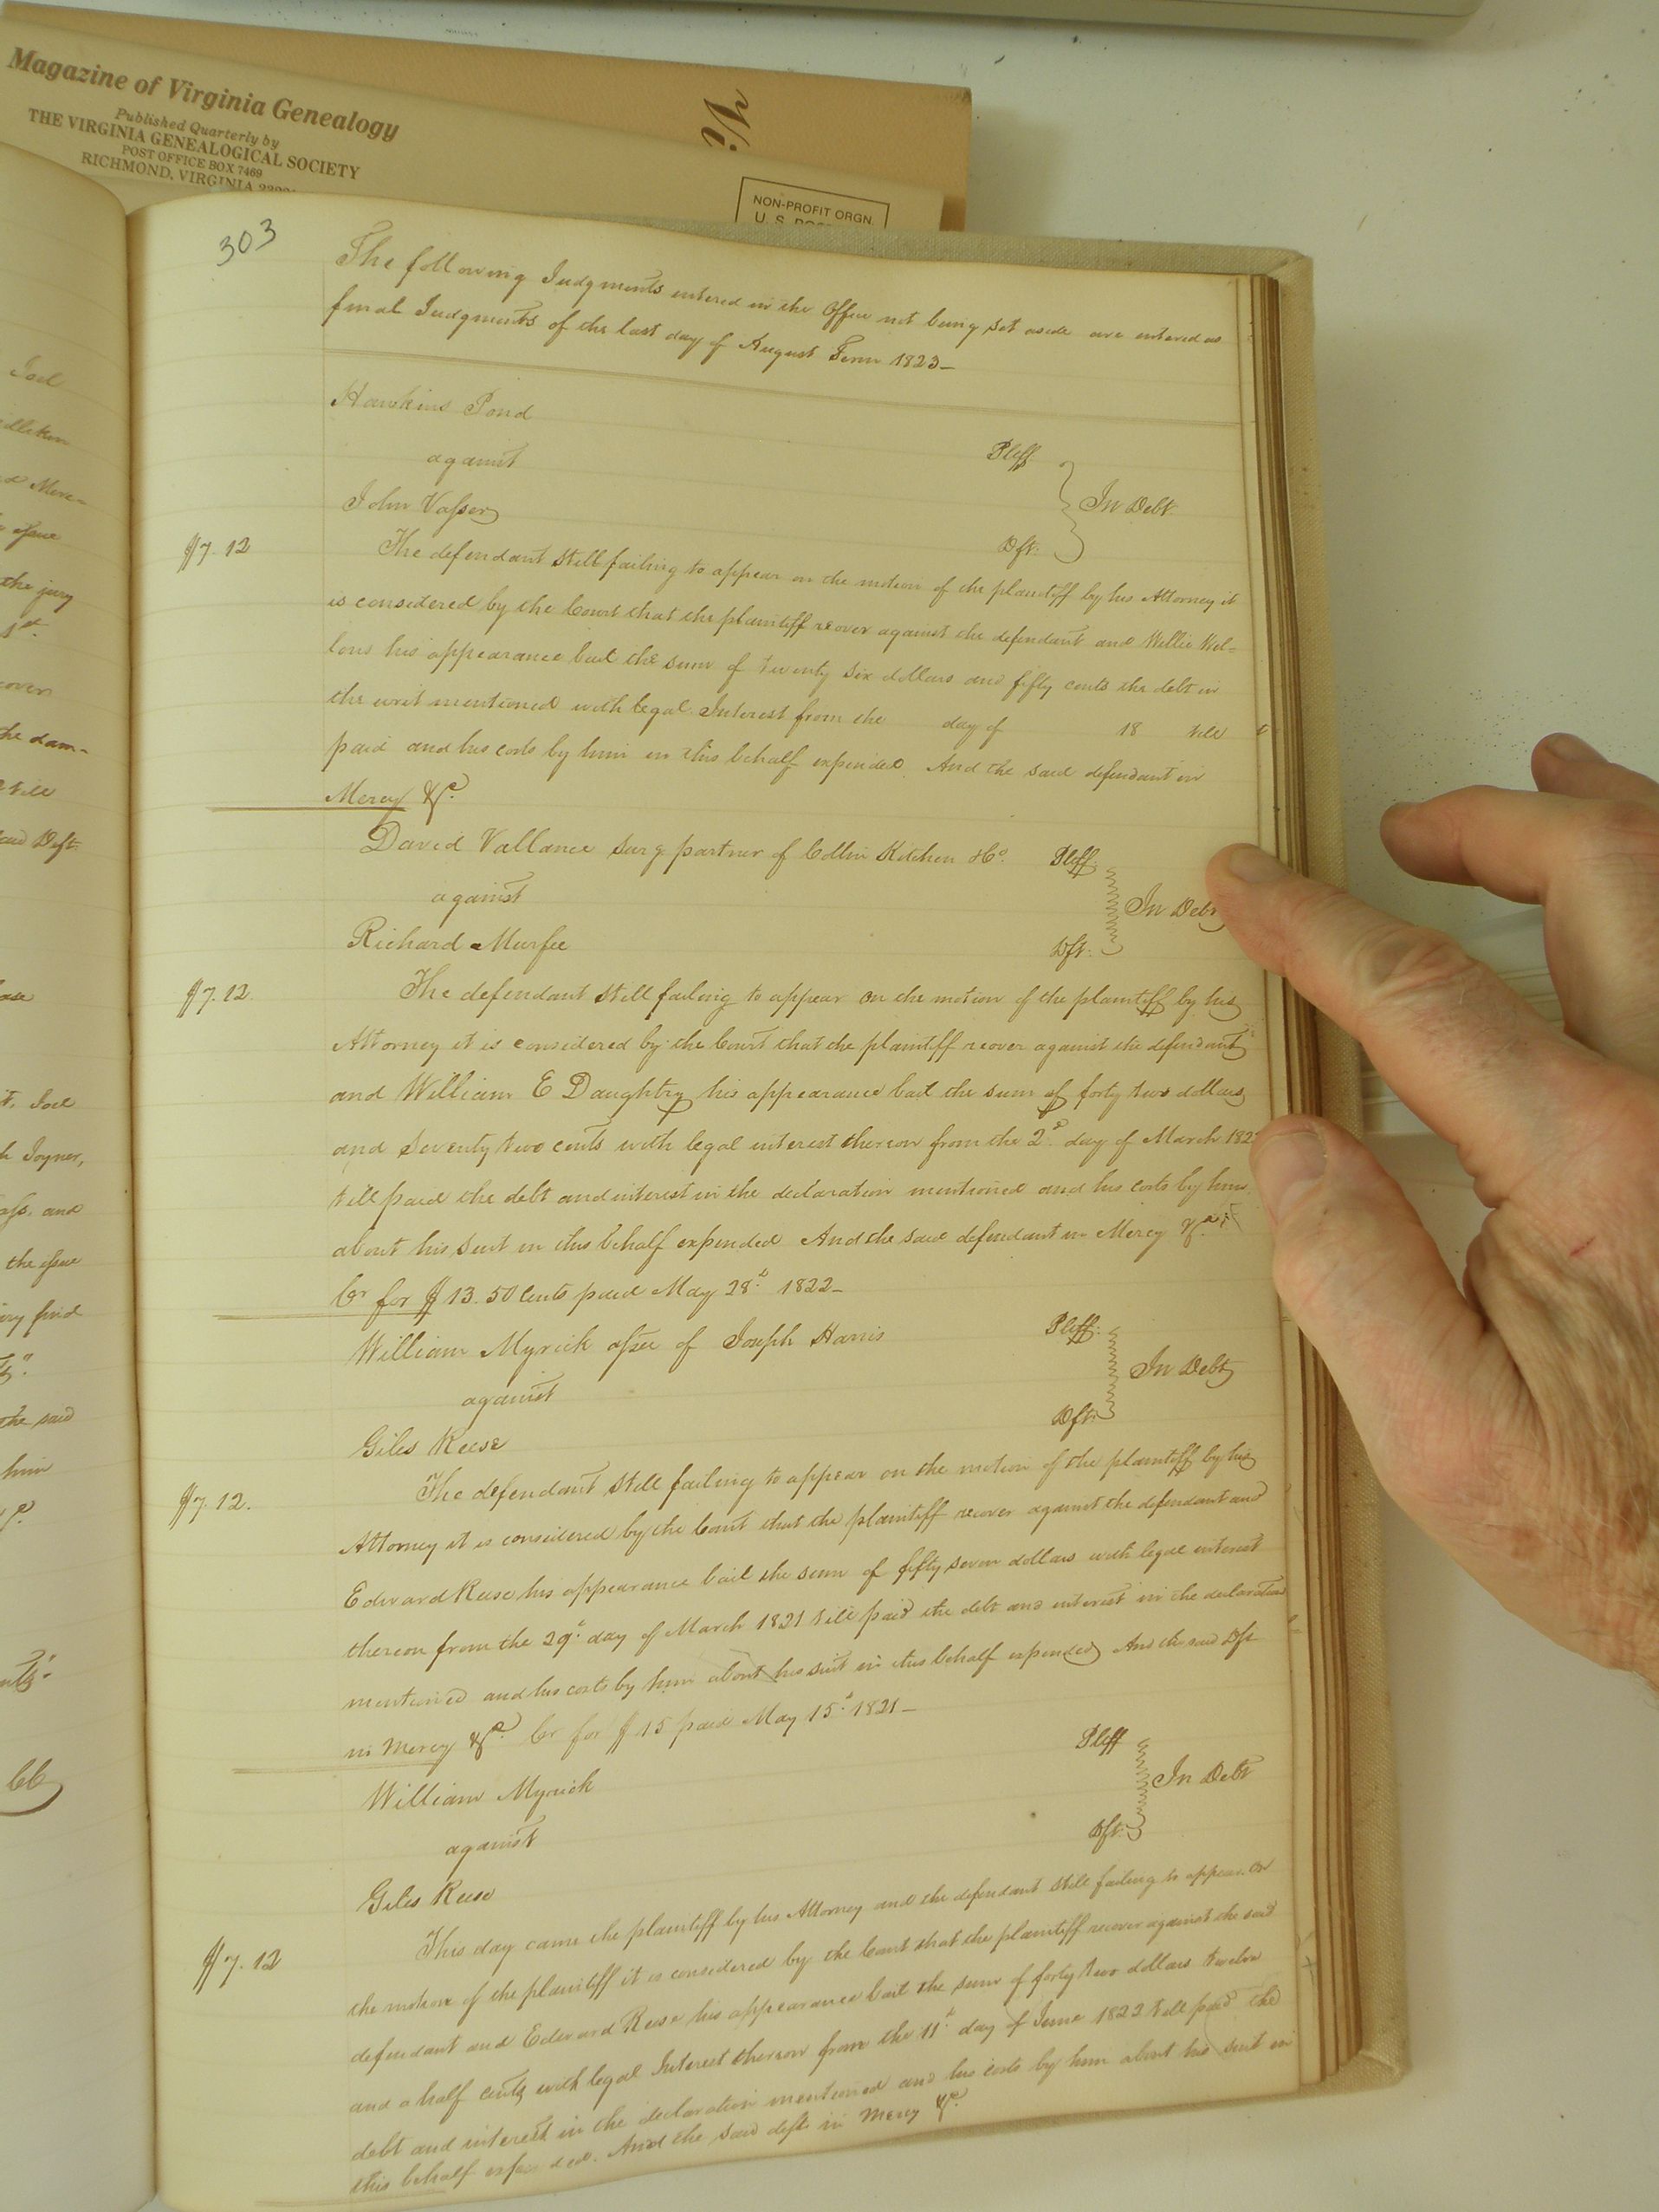 Magazine of Virginia Genealogy
Published Quarterly by
THE VIRGINIA GENEALOGICAL SOCIETY
POST OFFICE BOX 7469
RICHMOND, VIRGINIA
NON-PROFIT ORGN.
U. S.
303
The following Judgments entered in the Office not being set aside are entered as
final Judgments of the last day of August Term 1823—
Hawkins Pond
Pleff
against
In Debt
John Vasser
Dft.
$7.12
The defendant still failing to appear on the motion of the plaintiff by his Attorney it
is considered by the Court that the plaintiff recover against the defendant and Willie Wel-
lons his appearance bail the sum of twenty six dollars and fifty cents the debt in
the writ mentioned with legal Interest from the day of 18 till
paid and his costs by him in this behalf expended And the said defendant in
Mercy &c.
David Vallance surg partner of Collin Kitchen &Co. Pleff.
against
In Debt
Richard Murfee
Dft.
$7.12
The defendant still failing to appear on the motion of the plaintiff by his
Attorney it is considered by the Court that the plaintiff recover against the defendant
and William E Daughtry his appearance bail the sum of forty two dollars
and Seventy two cents with legal interest thereon from the 2d. day of March 182
till paid the debt and interest in the declaration mentioned and his costs by him
about his suit in this behalf expended And the said defendant in Mercy &c.
Cr for $13.50 Cents paid May 28th. 1822—
William Myrick assee of Joseph Harris
Pleff.
against
In Debt
Giles Reese
Dft.
$7.12.
The defendant still failing to appear on the motion of the plaintiff by his
Attorney it is considered by the Court that the plaintiff recover against the defendant and
Edward Reese his appearance bail the sum of fifty seven dollars with legal interest
thereon from the 29th. day of March 1821 till paid the debt and interest in the declaration
mentioned and his costs by him about his suit in this behalf expended And the said Dft
in Mercy &c. Cr for $15 paid May 15th. 1821—
William Myrick
Pleff
against
In Debt
Giles Reese
Dft.
$7.12
This day came the plaintiff by his Attorney and the defendant still failing to appear on
the motion of the plaintiff it is considered by the Court that the plaintiff recover against the said
defendant and Edward Reese his appearance bail the sum of forty two dollars twelve
and a half cents with legal Interest thereon from the 11th. day of June 1822 till paid the
debt and interest in the declaration mentioned and his costs by him about his suit in
this behalf expended. And the said deft in Mercy &c.